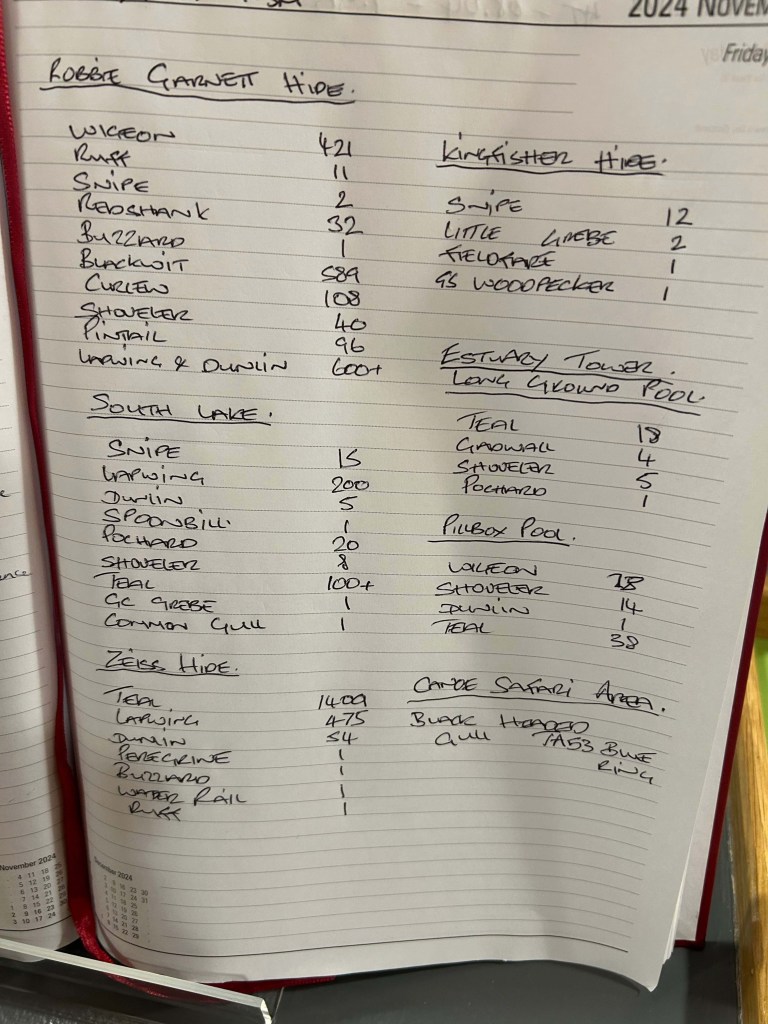 2024 NOVEM
Friday
ROBBIE GARNETT HIDE.
WIGEON 421
RUFF 11
SNIPE 2
REDSHANK 32
BUZZARD 1
BLACKWIT 589
CURLEW 108
SHOVELER 40
PINTAIL 96
LAPWING & DUNLIN 600+
SOUTH LAKE.
SNIPE 15
LAPWING 200
DUNLIN 5
SPOONBILL. 1
POCHARD 20
SHOVELER 8
TEAL 100+
GC GREBE 1
COMMON GULL 1
ZEISS HIDE.
TEAL. 1409
LAPWING 475
DUNLIN 54
PEREGRINE 1
BUZZARD 1
WATER RAIL 1
RUFF 1
KINGFISHER HIDE.
SNIPE 12
LITTLE GREBE 2
FIELDFARE 1
GS WOODPECKER 1
ESTUARY TOWER.
LONG GROUND POOL.
TEAL 18
GADWALL 4
SHOVELER 5
POCHARD 1
PILLBOX POOL.
WIGEON
SHOVELER 14
DUNLIN 1
TEAL 38
CANOE SAFARI AREA.
BLACK HEADED
GULL TA53 BLUE
RING
November 2024
December 2024